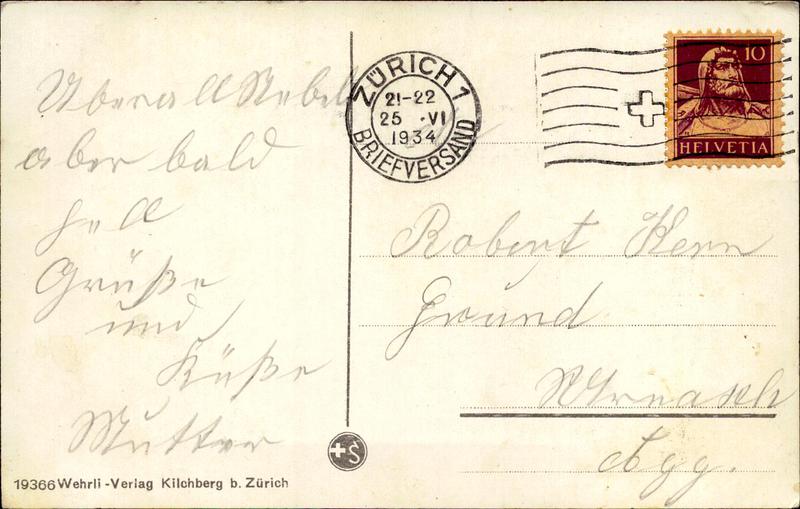 Überall Nebel
aber bald
hell
Grüße
und
Küße
Mutter
19366 Wehrli-Verlag Kilchberg b. Zürich
ZÜRICH 1
21-22
25 ·VI
1934
BRIEFVERSAND
10
HELVETIA
Robert Kern
Grund
Agg.
+S